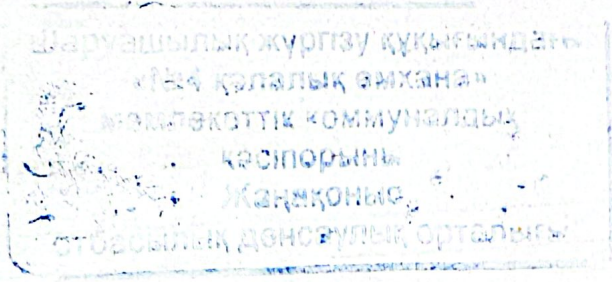 Шаруашылық жүргізу құқығындағы
қалалық емхана»
мемлекеттік коммуналдық
кәсіпорыны
Жаңақоныс
отбасылық денсаулық орталығы